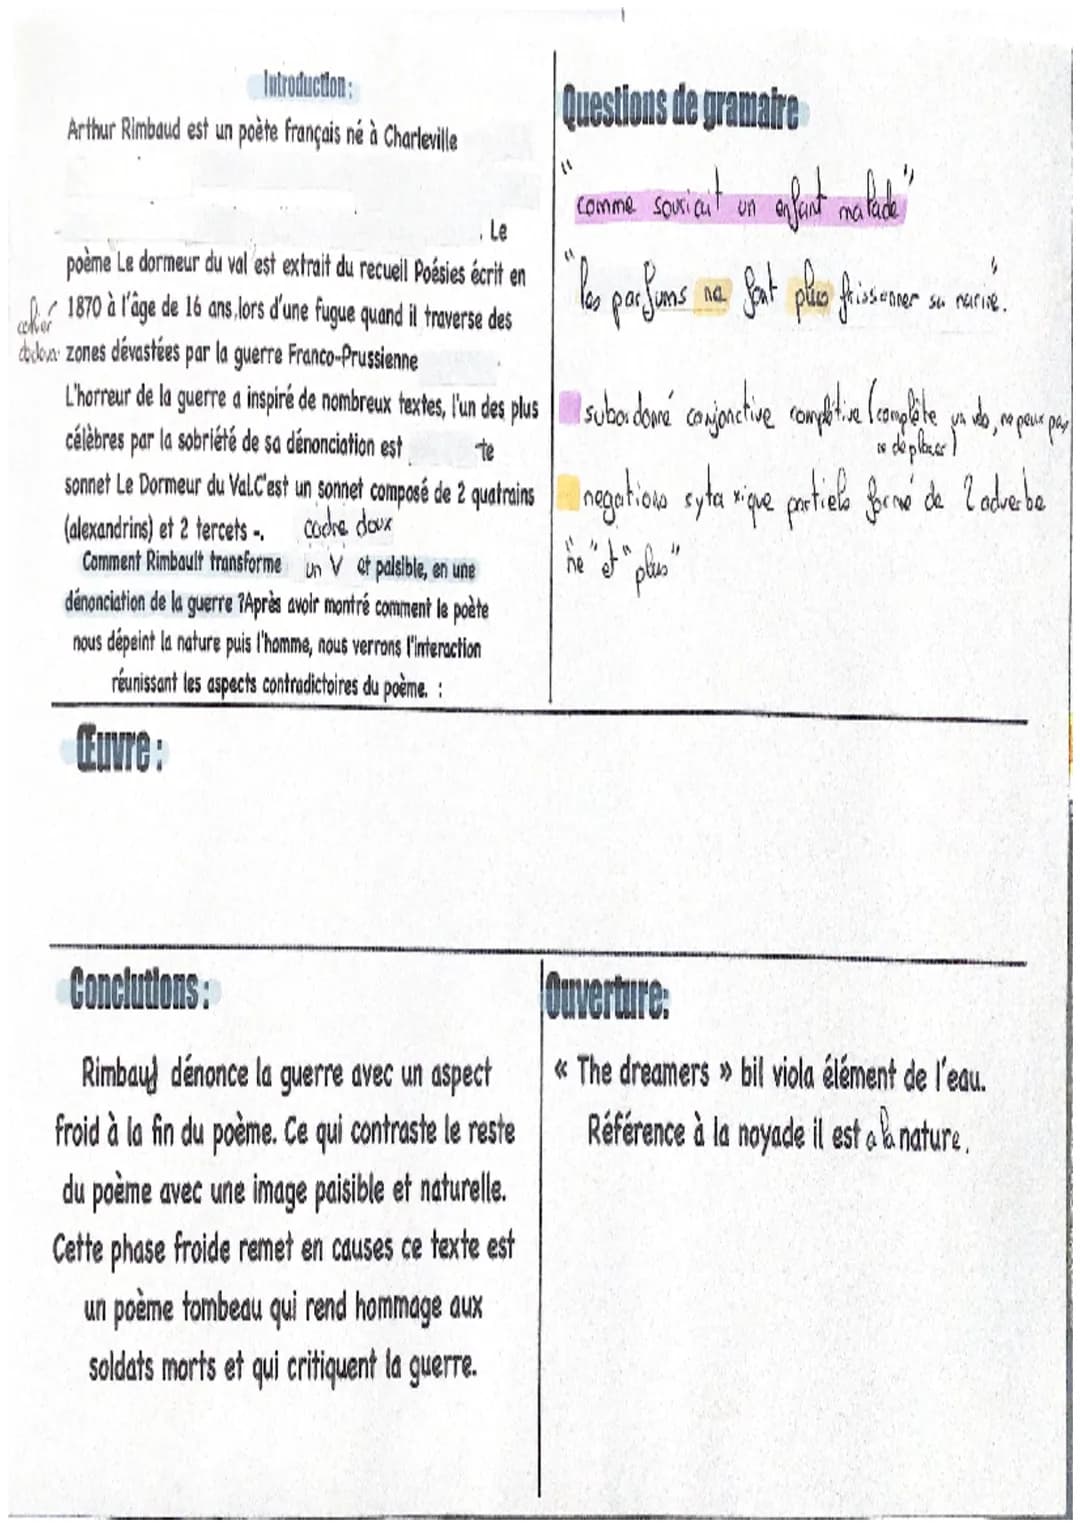 Introduction :
Arthur Rimbaud est un poète français né à Charleville
. Le
poème Le dormeur du val est extrait du recueil Poésies écrit en
1870 à l'âge de 16 ans,lors d'une fugue quand il traverse des
zones dévastées par la guerre Franco-Prussienne
L'horreur de la guerre a inspiré de nombreux textes, l'un des plus
célèbres par la sobriété de sa dénonciation est te
sonnet Le Dormeur du Val.C'est un sonnet composé de 2 quatrains
(alexandrins) et 2 tercets -. cadre doux
Comment Rimbault transforme un V et paisible, en une
dénonciation de la guerre ?Après avoir montré comment le poète
nous dépeint la nature puis l'homme, nous verrons l'interaction
réunissant les aspects contradictoires du poème. :
Questions de gramaire
"comme souriait un enfant malade"
"les parfums ne font plus frissonner sa narine."
subordonné conjonctive complétive (complète un vb, ne peux pas
se déplacer)
negations syta xique partiels formé de 2 adverbe
"ne" et "plus"
Œuvre :
Conclutions :
Rimbaud dénonce la guerre avec un aspect
froid à la fin du poème. Ce qui contraste le reste
du poème avec une image paisible et naturelle.
Cette phase froide remet en causes ce texte est
un poème tombeau qui rend hommage aux
soldats morts et qui critiquent la guerre.
Ouverture:
« The dreamers » bil viola élément de l'eau.
Référence à la noyade il est a la nature.